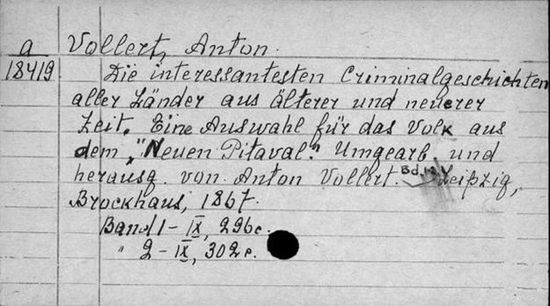 a Vollert, Anton.
18419 Die interessantesten Criminalgeschichten
aller Länder aus älterer und neuerer
Zeit. Eine Auswahl für das Volk aus
dem „Neuen Pitaval“. Umgearb. und
herausg. von Anton Vollert. Bd. Leipzig,
Brockhaus, 1867.
Band 1 - IX, 296c.
„ 2 - IX, 302c.